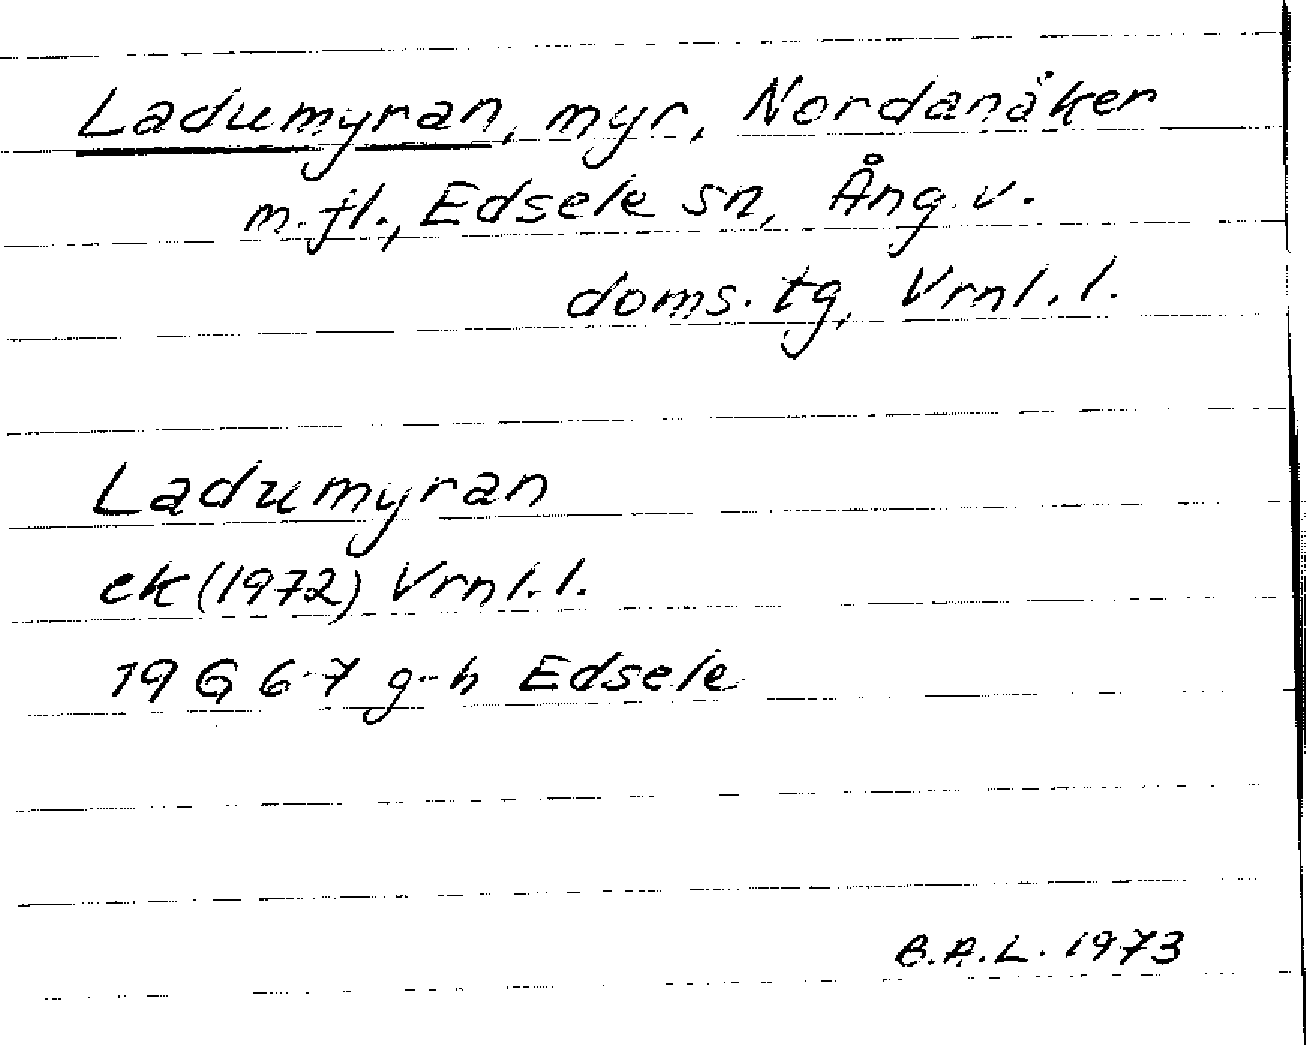 Ladumyran, myr, Nordanåker
m.fl., Edsele sn, Ång.v.
doms.tg, Vrnl.l.
Ladumyran
ek(1972) Vrnl.l.
19 G 6-7 g-h Edsele
B.A.L. 1973